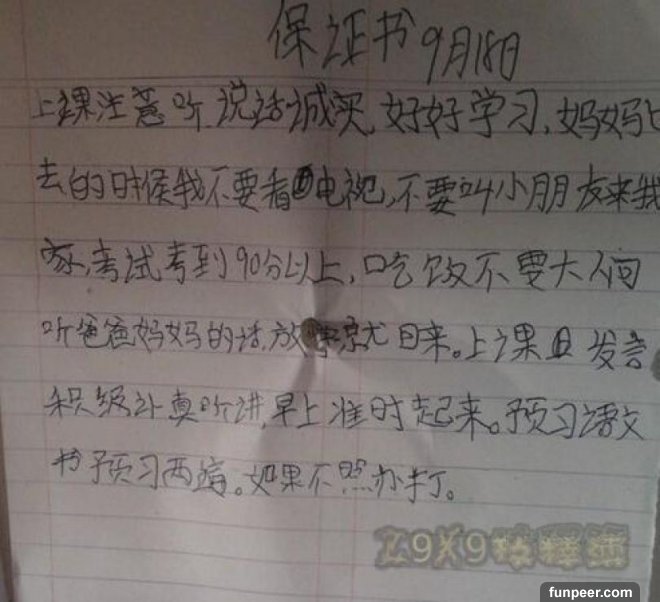 保证书 9月18日
上课注意听 说话诚买,好好学习,妈妈出
去的时候我不要看电视,不要叫小朋友来我
家,考试考到90分以上,口吃饭不要大人问
听爸爸妈妈的话,放学就回来。上课且发言
积级认真听讲,早上准时起来。预习语文
书预习两遍。如果不照办打。
funpeer.com